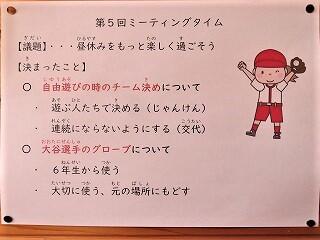 第５回ミーティングタイム
【議題】・・・昼休みをもっと楽しく過ごそう
【決まったこと】
○ 自由遊びの時のチーム決めについて
・ 遊ぶ人たちで決める（じゃんけん）
・ 連続にならないようにする（交代）
○ 大谷選手のグローブについて
・ ６年生から使う
・ 大切に使う、元の場所にもどす